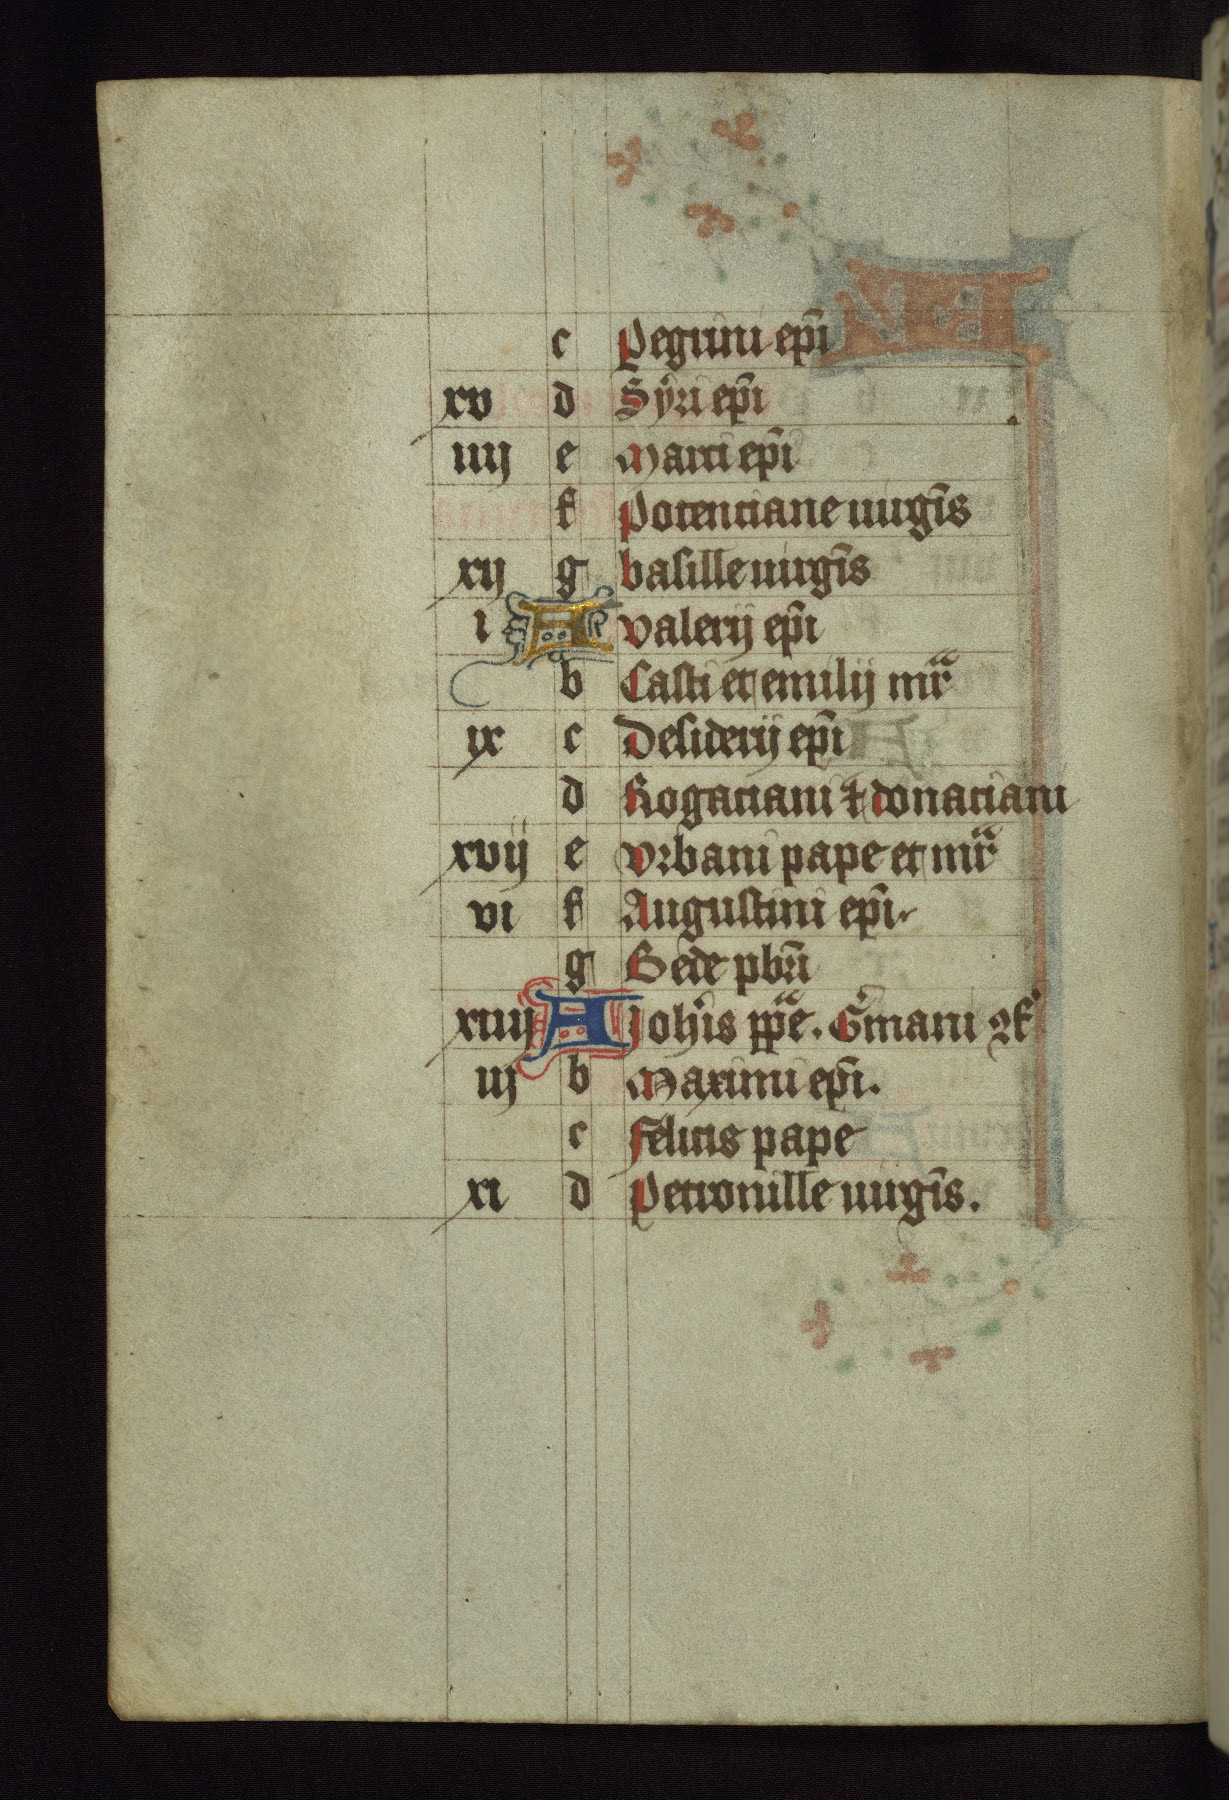 c Pegrini ep̄i
xv d Syri ep̄i
iiij e Marci ep̄i
f Potenciane uirgīs
xij g basille uirgīs
i A Valerij ep̄i
b Casti et emilij mr̄
ix c Desiderij ep̄i
d Rogaciani ⁊ donaciani
xvij e Vrbani pape et mr̄
vi f Augustini ep̄i
g Bede pb̄ri
xiiij A Joh̄is pp̄e. Gm̄ani ꝯf
iij b Maximi ep̄i.
c Felicis pape
xi d Petronille uirgīs.